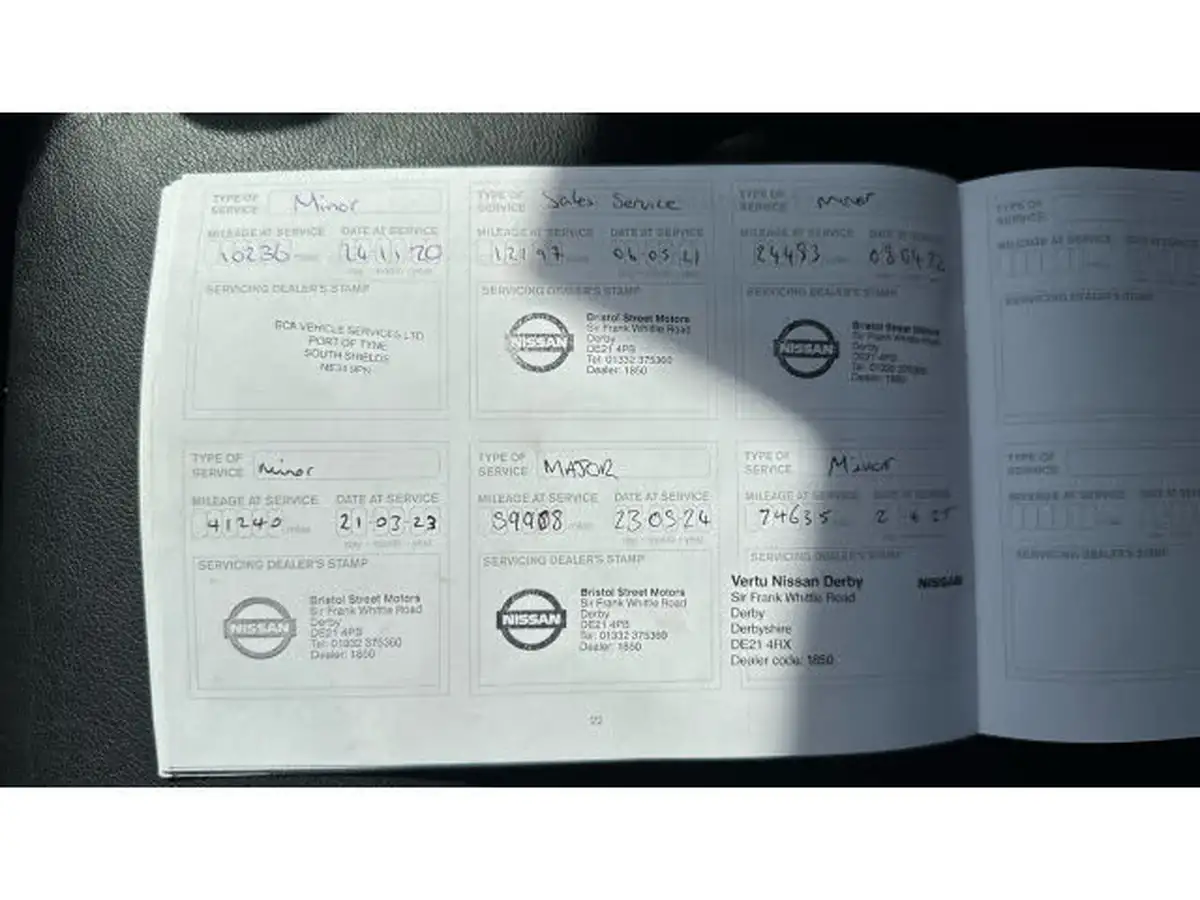 TYPE OF SERVICE Minor
MILEAGE AT SERVICE DATE AT SERVICE
10236 24 11 20
SERVICING DEALER'S STAMP
BCA VEHICLE SERVICES LTD
PORT OF TYNE
SOUTH SHIELDS
TYPE OF SERVICE Sales Service
MILEAGE AT SERVICE DATE AT SERVICE
12197 06 05 21
SERVICING DEALER'S STAMP
NISSAN
Bristol Street Motors
Sir Frank Whittle Road
Derby
DE21 4PB
Tel: 01332 375360
Dealer: 1850
TYPE OF SERVICE minor
MILEAGE AT SERVICE DATE AT SERVICE
24483
SERVICING DEALER'S STAMP
NISSAN
Bristol Street Motors
Sir Frank Whittle Road
Derby
DE21 4PB
Tel: 01332 375360
Dealer: 1850
TYPE OF SERVICE
MILEAGE AT SERVICE
SERVICING DEALER'S STAMP
TYPE OF SERVICE minor
MILEAGE AT SERVICE DATE AT SERVICE
41240 21 03 23
SERVICING DEALER'S STAMP
NISSAN
Bristol Street Motors
Sir Frank Whittle Road
Derby
DE21 4PB
Tel: 01332 375360
Dealer: 1850
TYPE OF SERVICE MAJOR
MILEAGE AT SERVICE DATE AT SERVICE
59908 23 05 24
SERVICING DEALER'S STAMP
NISSAN
Bristol Street Motors
Sir Frank Whittle Road
Derby
DE21 4PB
Tel: 01332 375360
Dealer: 1850
TYPE OF SERVICE Minor
MILEAGE AT SERVICE DATE AT SERVICE
74635 2 4 25
SERVICING DEALER'S STAMP
Vertu Nissan Derby NISSAN
Sir Frank Whittle Road
Derby
Derbyshire
DE21 4RX
Dealer code: 1850
TYPE OF SERVICE
MILEAGE AT SERVICE
SERVICING DEALER'S STAMP
22